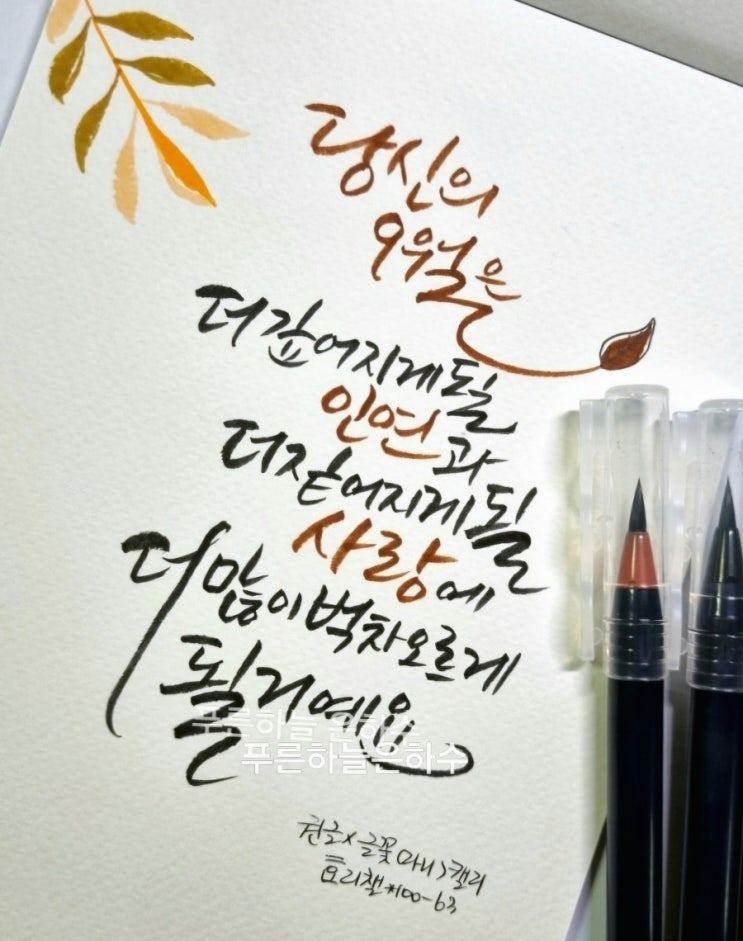 당신의
9월은
더 깊어지게 될
인연과
더 짙어지게 될
사랑에
더 많이 벅차오르게
될 거예요
푸른하늘 은하수
푸른하늘은하수
글꽃
캘리
*100-63